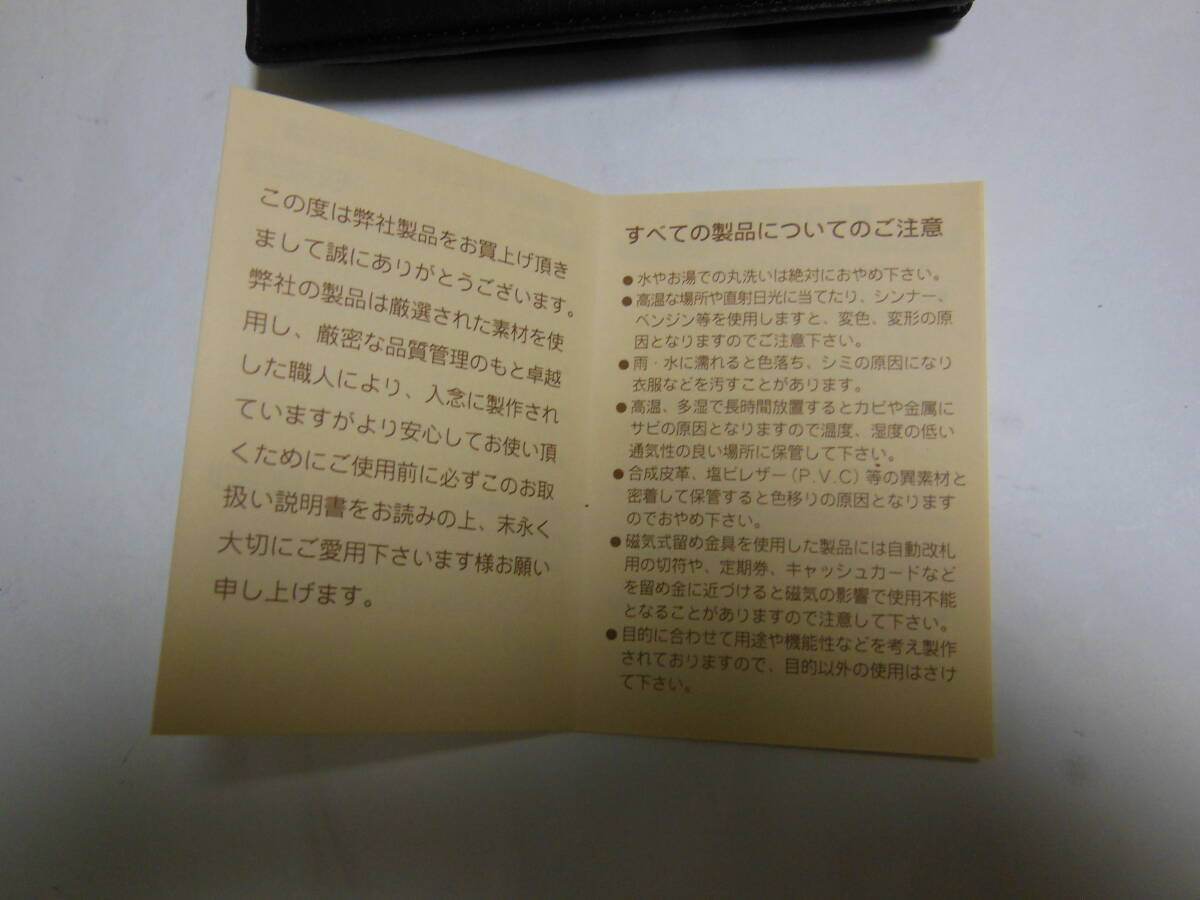 この度は弊社製品をお買上げ頂き
まして誠にありがとうございます。
弊社の製品は厳選された素材を使
用し、厳密な品質管理のもと卓越
した職人により、入念に製作され
ていますがより安心してお使い頂
くためにご使用前に必ずこのお取
扱い説明書をお読みの上、末永く
大切にご愛用下さいます様お願い
申し上げます。
すべての製品についてのご注意
●水やお湯での丸洗いは絶対におやめ下さい。
●高温な場所や直射日光に当てたり、シンナー、
ベンジン等を使用しますと、変色、変形の原
因となりますのでご注意下さい。
●雨・水に濡れると色落ち、シミの原因になり
衣服などを汚すことがあります。
●高温、多湿で長時間放置するとカビや金属に
サビの原因となりますので温度、湿度の低い
通気性の良い場所に保管して下さい。
●合成皮革、塩ビレザー(P.V.C)等の異素材と
密着して保管すると色移りの原因となります
のでおやめ下さい。
●磁気式留め金具を使用した製品には自動改札
用の切符や、定期券、キャッシュカードなど
を留め金に近づけると磁気の影響で使用不能
となることがありますので注意して下さい。
●目的に合わせて用途や機能性などを考え製作
されておりますので、目的以外の使用はさけ
て下さい。